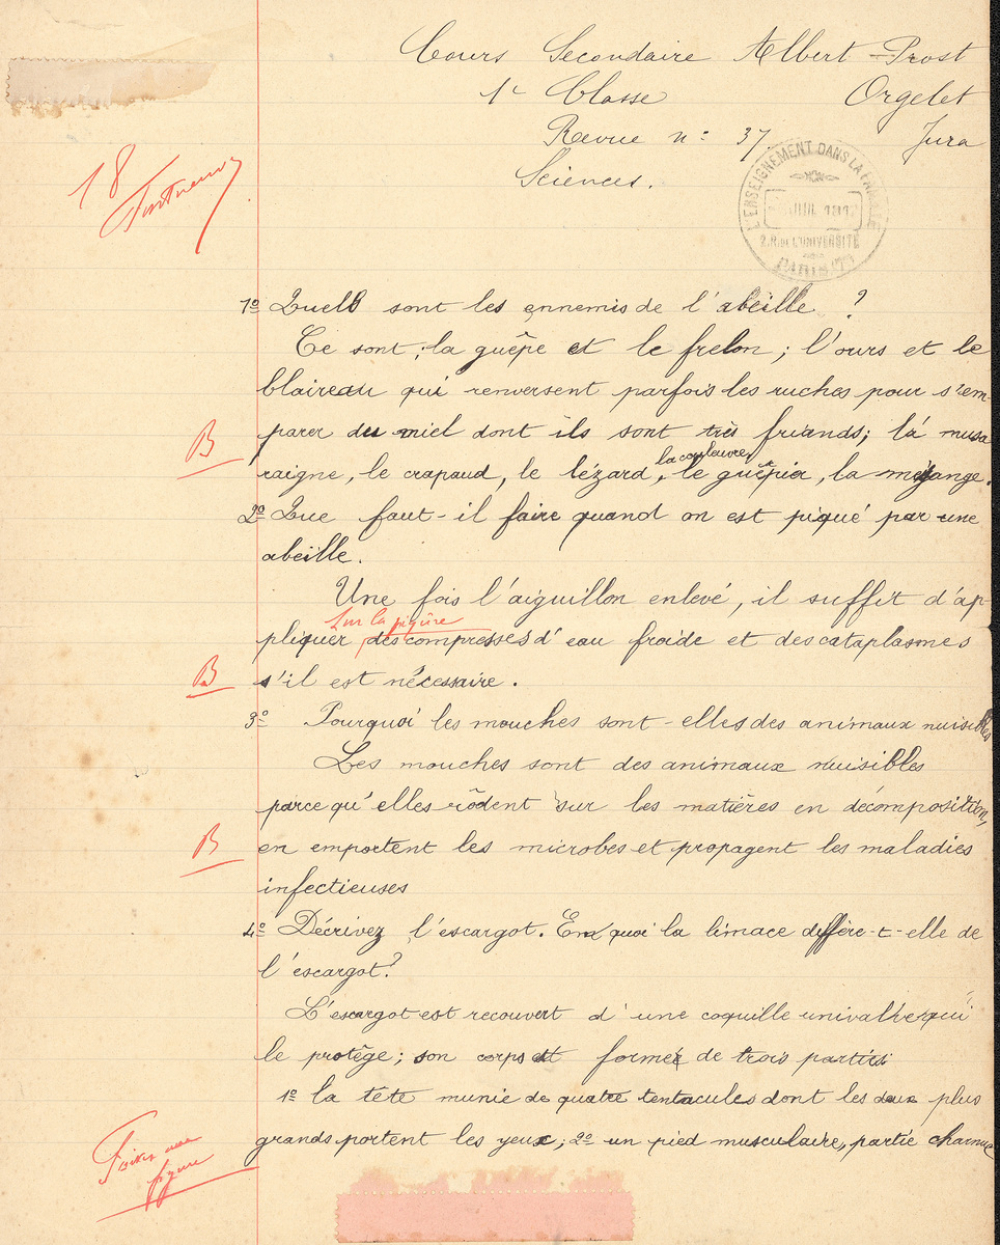 Cours Secondaire Albert-Prost
1e Classe Orgelet
Revue n: 37. Jura
Sciences.
L'ENSEIGNEMENT DANS LA FAMILLE
JUIL 191
2. R. DE L'UNIVERSITÉ
PARIS 7e
18
1º Quells sont les ennemis de l'abeille ?
Ce sont ; la guêpe et le frelon ; l'ours et le
blaireau qui renversent parfois les ruches pour s'em-
parer du miel dont ils sont très friands ; la musa
B
raigne, le crapaud, le lézard, la couleuvre, le guêpier, la mésange.
2º Que faut-il faire quand on est piqué par une
abeille.
Une fois l'aiguillon enlevé, il suffit d'ap-
sur la piqûre
pliquer des compresses d'eau froide et des cataplasmes
B s'il est nécessaire.
3º Pourquoi les mouches sont-elles des animaux nuisibles
Les mouches sont des animaux nuisibles
parce qu'elles rôdent sur les matières en décomposition,
B en emportent les microbes et propagent les maladies
infectieuses
4º Décrivez l'escargot. En quoi la limace diffère-t-elle de
l'escargot ?
L'escargot est recouvert d'une coquille univalve qui
le protège ; son corps est formé de trois parties
1º la tête munie de quatre tentacules dont les deux plus
grands portent les yeux ; 2º un pied musculaire, partie charnue
Faites une
figure